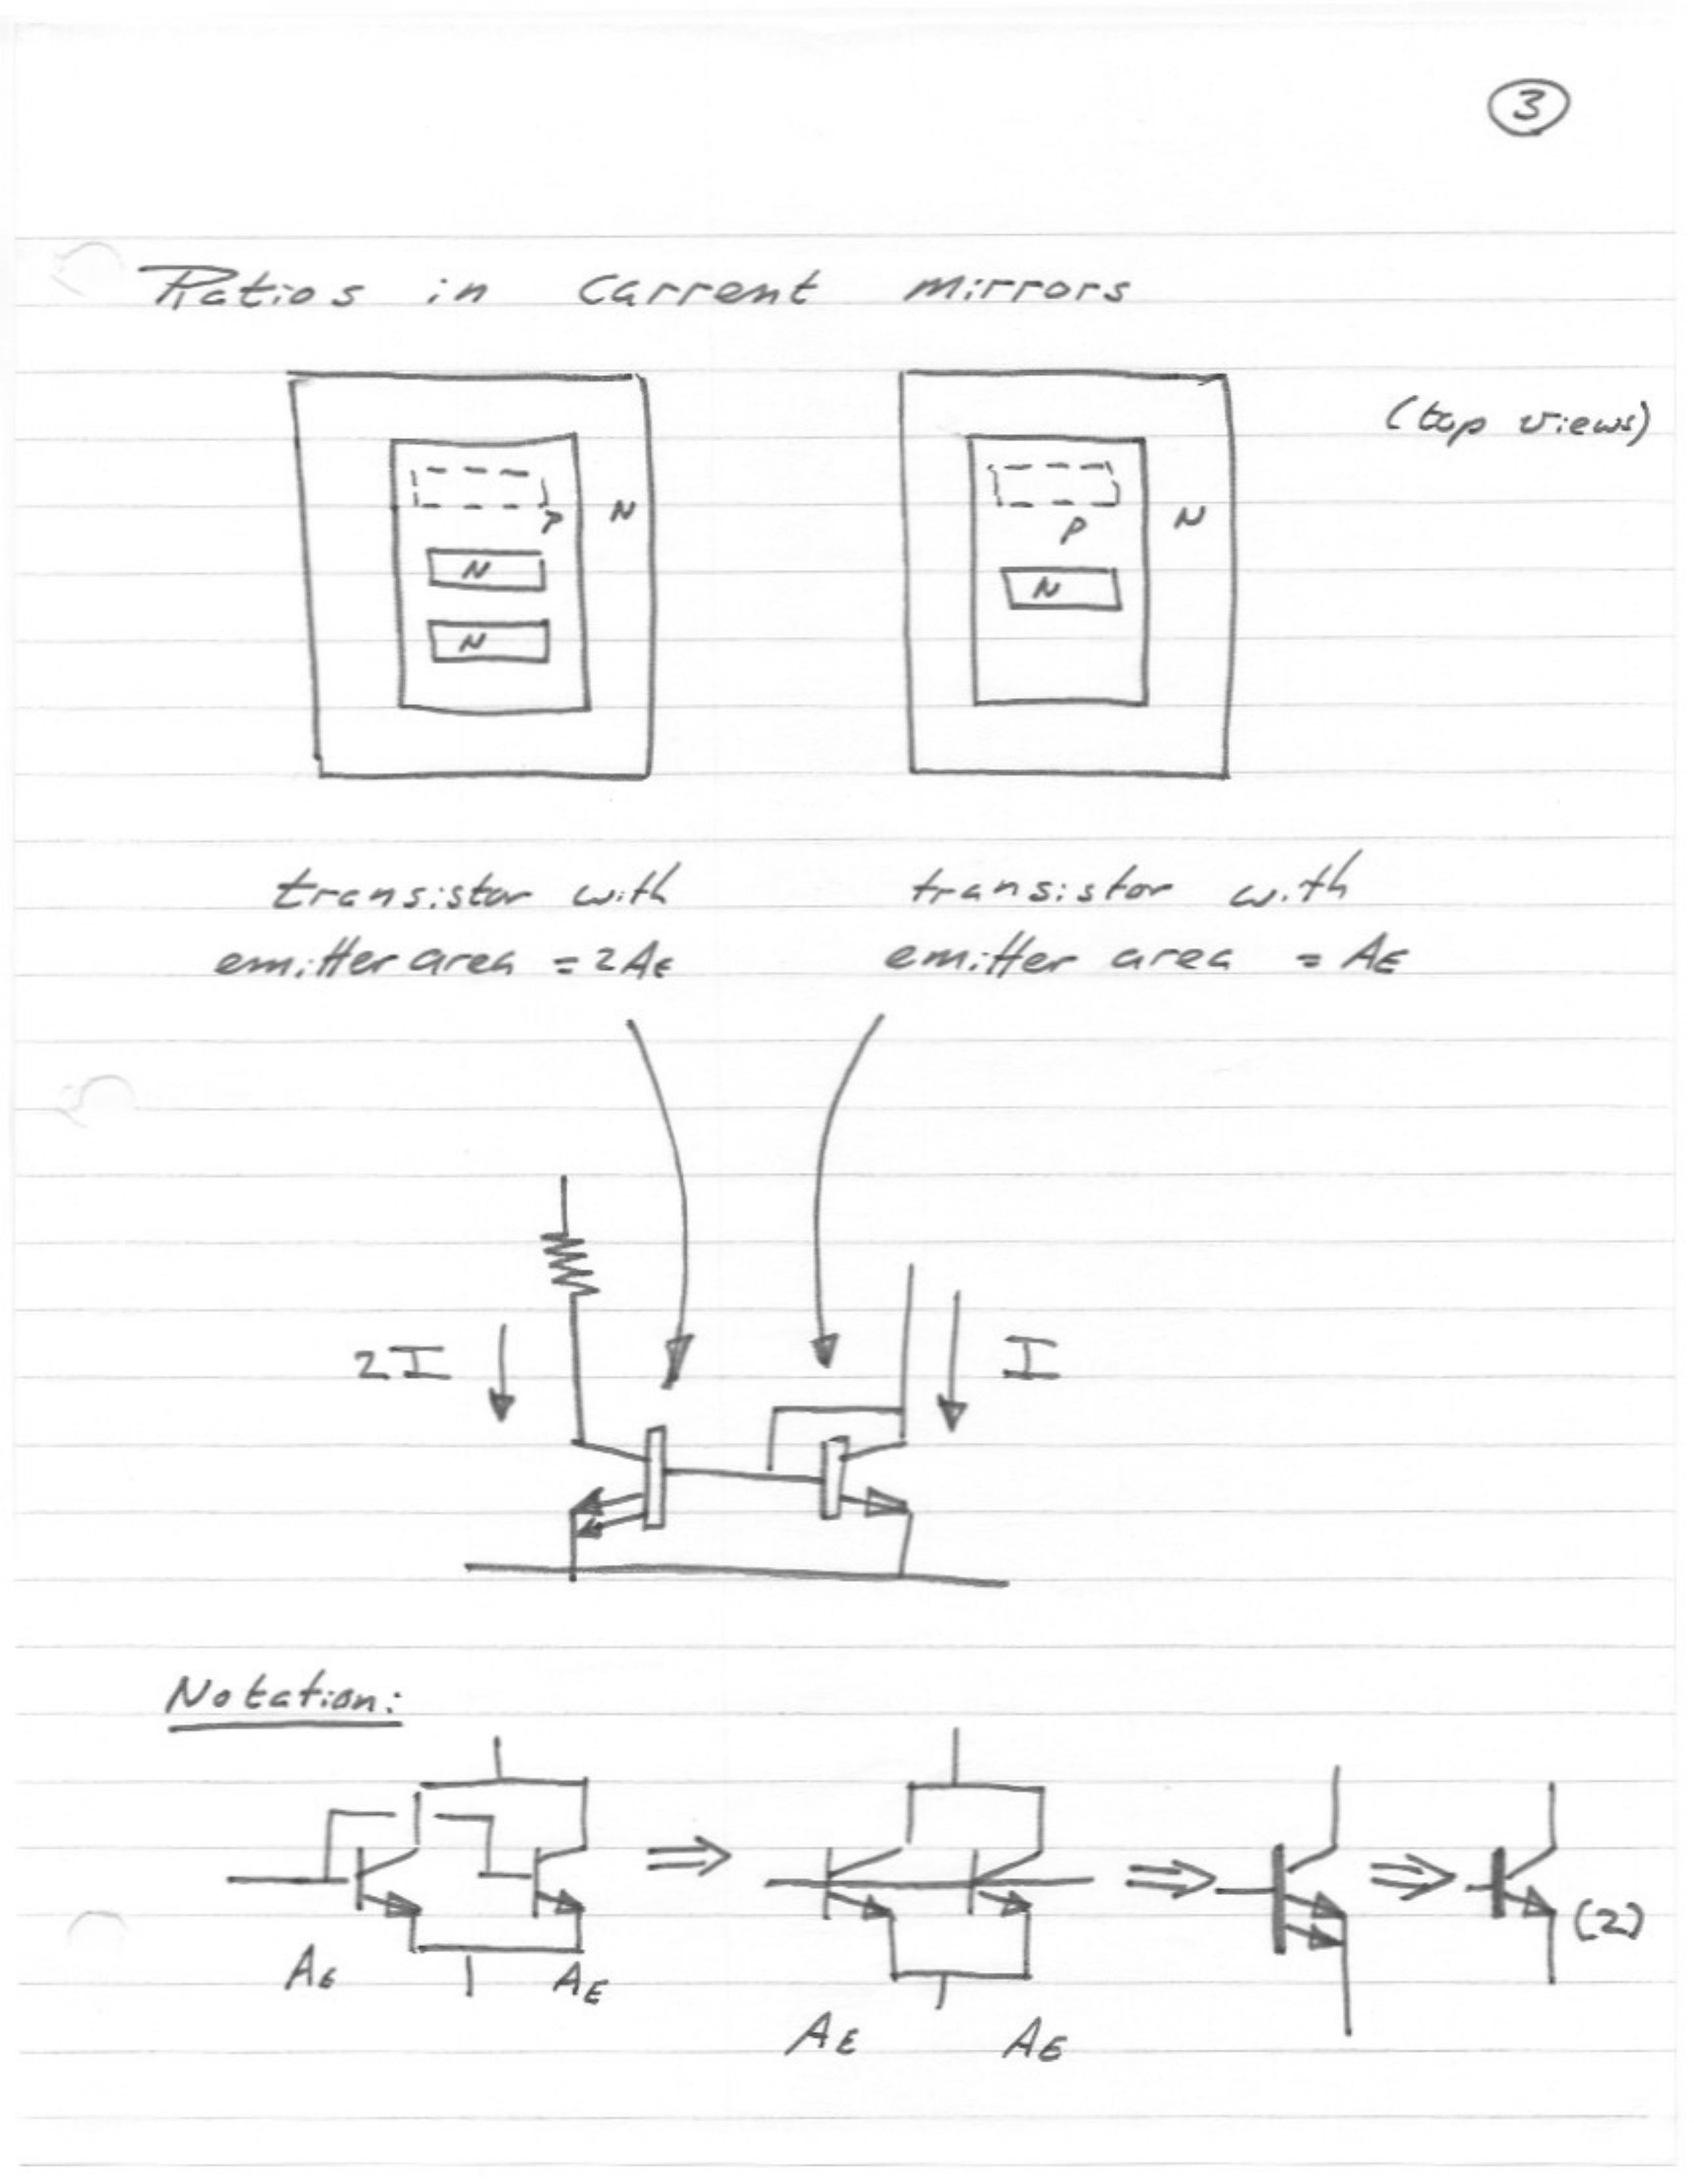 3
Ratios in current mirrors
(top views)
P N
P N
N
N
N
transistor with
emitter area = 2AE
transistor with
emitter area = AE
2I
I
Notation:
(2)
AE AE
AE AE